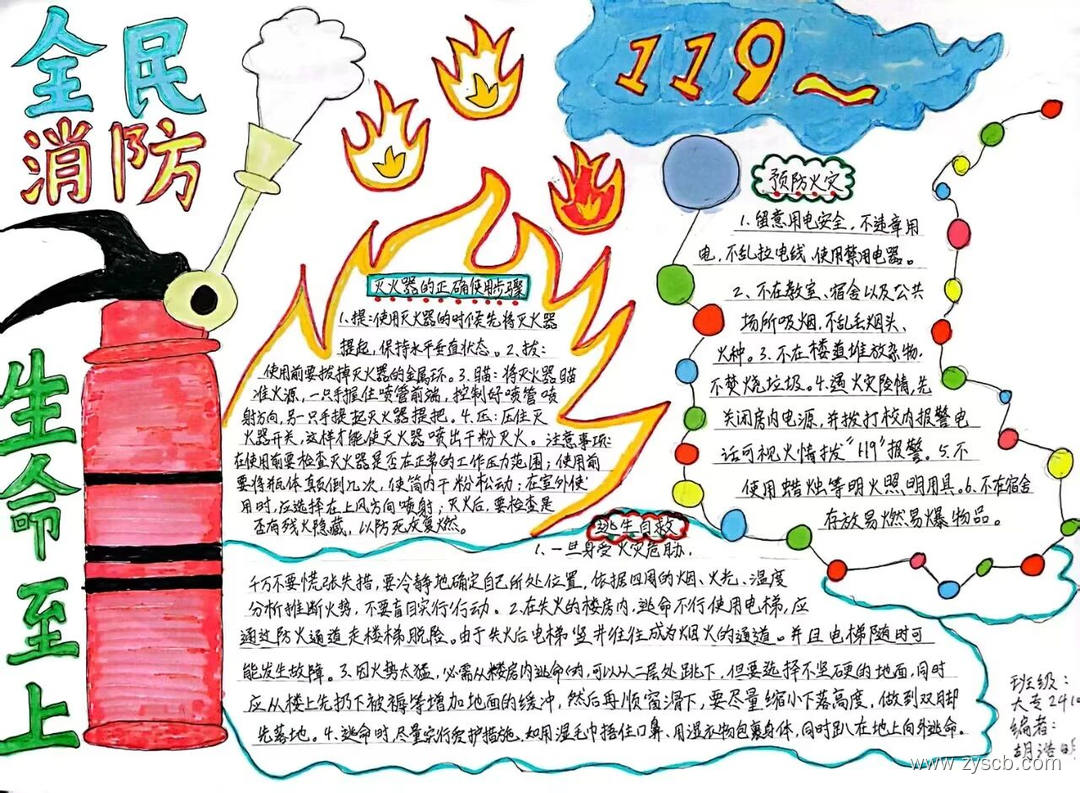 全民
消防
生命至上
119~
灭火器的正确使用步骤
1、提:使用灭火器的时候先将灭火器
提起,保持水平垂直状态。2、拔:
使用前要拔掉灭火器的金属环。3、瞄:将灭火器瞄
准火源,一只手握住喷管前端,控制好喷管喷
射方向,另一只手提起灭火器提把。4、压:压住灭
火器开关,这样才能使灭火器喷出干粉灭火。注意事项:
在使用前要检查灭火器是否在正常的工作压力范围;使用前
要将瓶体颠倒几次,使筒内干粉松动;在室外使
用时,应选择在上风方向喷射;灭火后,要检查是
否有残火隐藏,以防死灰复燃。
预防火灾
1、留意用电安全,不违章用
电,不乱拉电线,使用禁用电器。
2、不在教室、宿舍以及公共
场所吸烟,不乱丢烟头、
火种。3、不在楼道堆放杂物,
不焚烧垃圾。4、遇火灾险情,先
关闭房内电源,并拨打校内报警电
话可视火情拨"119"报警。5、不
使用蜡烛等明火照明用具。6、不在宿舍
存放易燃易爆物品。
逃生自救
1、一旦身受火灾危胁,
千万不要慌张失措,要冷静地确定自己所处位置,依据四周的烟、火光、温度
分析推断火势,不要盲目实行行动。2、在失火的楼房内,逃命不行使用电梯,应
通过防火通道走楼梯脱险。由于失火后电梯竖井往往成为烟火的通道。并且电梯随时可
能发生故障。3、因火势太猛,必需从楼房内逃命的,可以从二层处跳下,但要选择不坚硬的地面,同时
应从楼上先扔下被褥等增加地面的缓冲,然后再顺窗滑下,要尽量缩小下落高度,做到双脚
先落地。4、逃命时,尽量实行爱护措施,如用湿毛巾捂住口鼻、用湿衣物包裹身体,同时趴在地上向外逃命。
班级:
大专241
编者:
胡浩明
www.zyscb.com